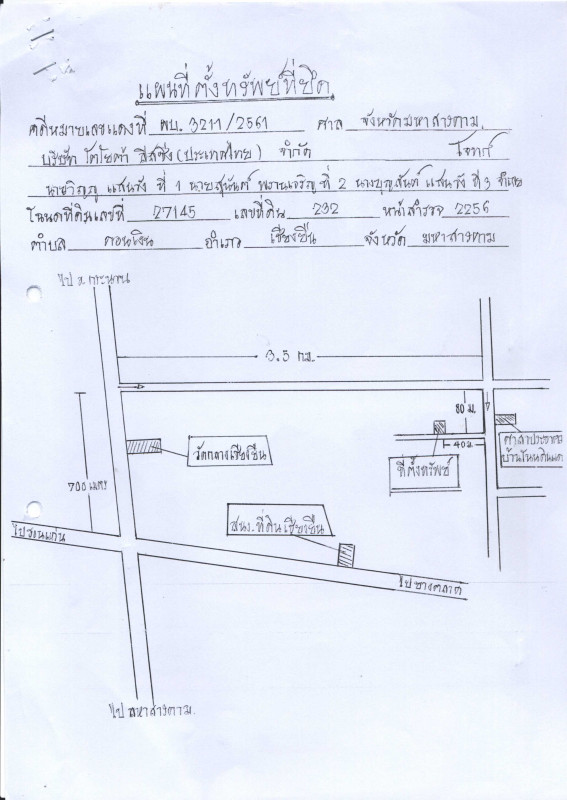 แผนที่ตั้งทรัพย์ที่ยึด
คดีหมายเลขแดงที่ ผบ. 3211/2561 ศาล จังหวัดมหาสารคาม.
บริษัท โตโยต้า ลีสซิ่ง (ประเทศไทย) จำกัด โจทก์
ที่ 1 นายสุนันต์ ที่ 2 นางบุญสันต์ แสนรัง ที่ 3 จำเลย
โฉนดที่ดินเลขที่ 27145 เลขที่ดิน 232 หน้าสำรวจ 2256
ตำบล กอนเงิน อำเภอ เชียงยืน จังหวัด มหาสารคาม
ไป อ.กระนวน
3.5 กม.
80 ม.
40 ม.
ศาลาประชาคม
บ้านโนนดินแดง
ที่ตั้งทรัพย์
วัดกลางเชียงยืน
700 เมตร
สนง.ที่ดินเชียงยืน
ไปขอนแก่น
ไปยางตลาด
ไปมหาสารคาม.